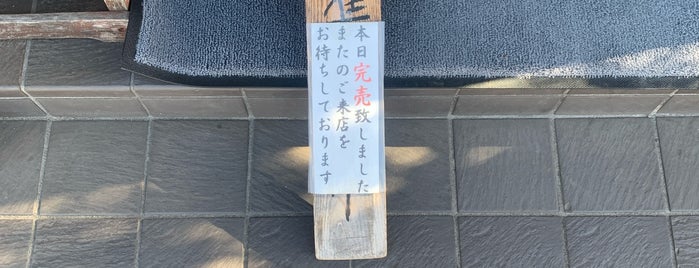 本日完売致しました
またのご来店を
お待ちしております